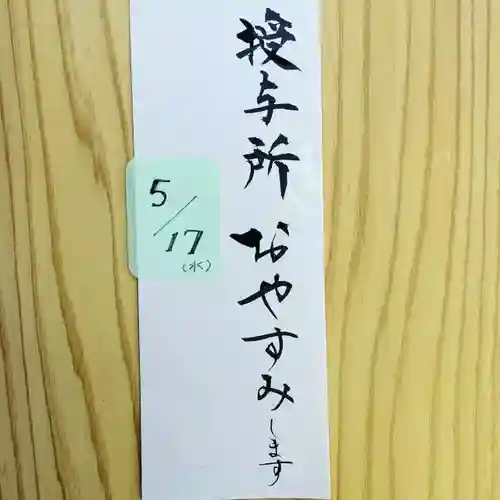 授与所 おやすみします
5/17
(水)